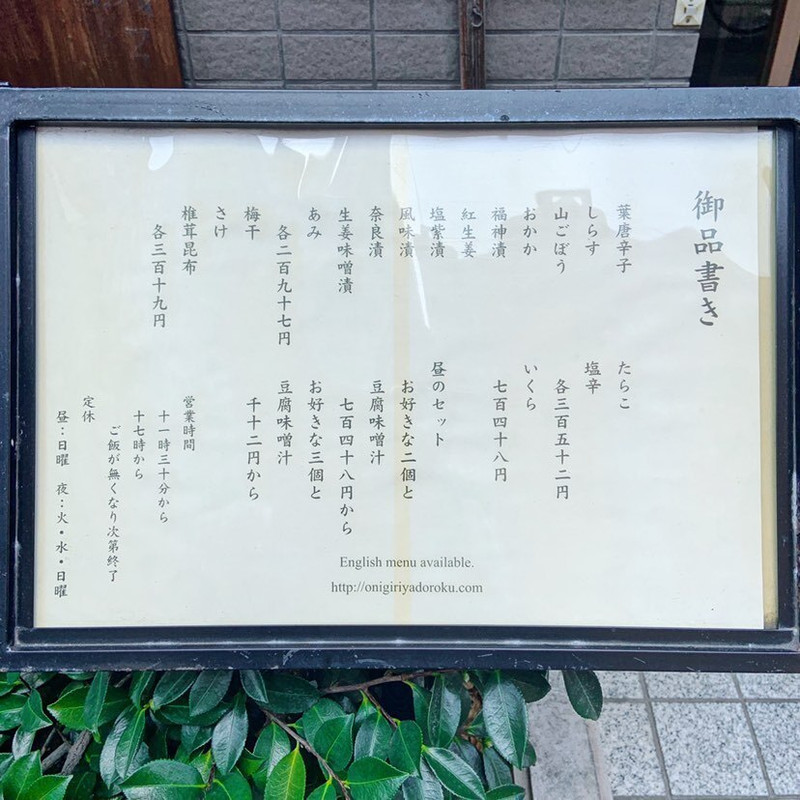 御品書き
葉唐辛子
しらす
山ごぼう
おかか
福神漬
紅生姜
塩紫漬
風味漬
奈良漬
生姜味噌漬
あみ
各二百九十七円
梅干
さけ
椎茸昆布
各三百十九円
たらこ
塩辛
各三百五十二円
いくら
七百四十八円
昼のセット
お好きな二個と
豆腐味噌汁
七百四十八円から
お好きな三個と
豆腐味噌汁
千十二円から
営業時間
十一時三十分から
十七時から
ご飯が無くなり次第終了
定休
昼：日曜 夜：火・水・日曜
English menu available.
http://onigiriyadoroku.com